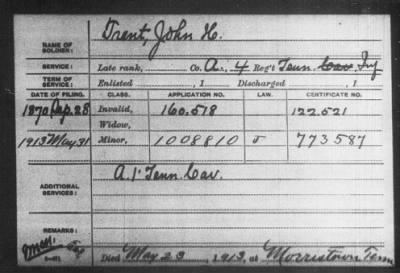 NAME OF SOLDIER: Trent, John H.
SERVICE: Late rank, Co. A, 4 Reg't Tenn. Cav Inf
TERM OF SERVICE: Enlisted 1 Discharged 1
DATE OF FILING. CLASS. APPLICATION NO. LAW. CERTIFICATE NO.
1870 Sep. 28 Invalid, 160.518 122.521
Widow,
1913 May 31 Minor, 1008810 J 773587
ADDITIONAL SERVICES: A. 1' Tenn. Cav.
REMARKS:
Died May 23, 1913, at Morristown Tenn